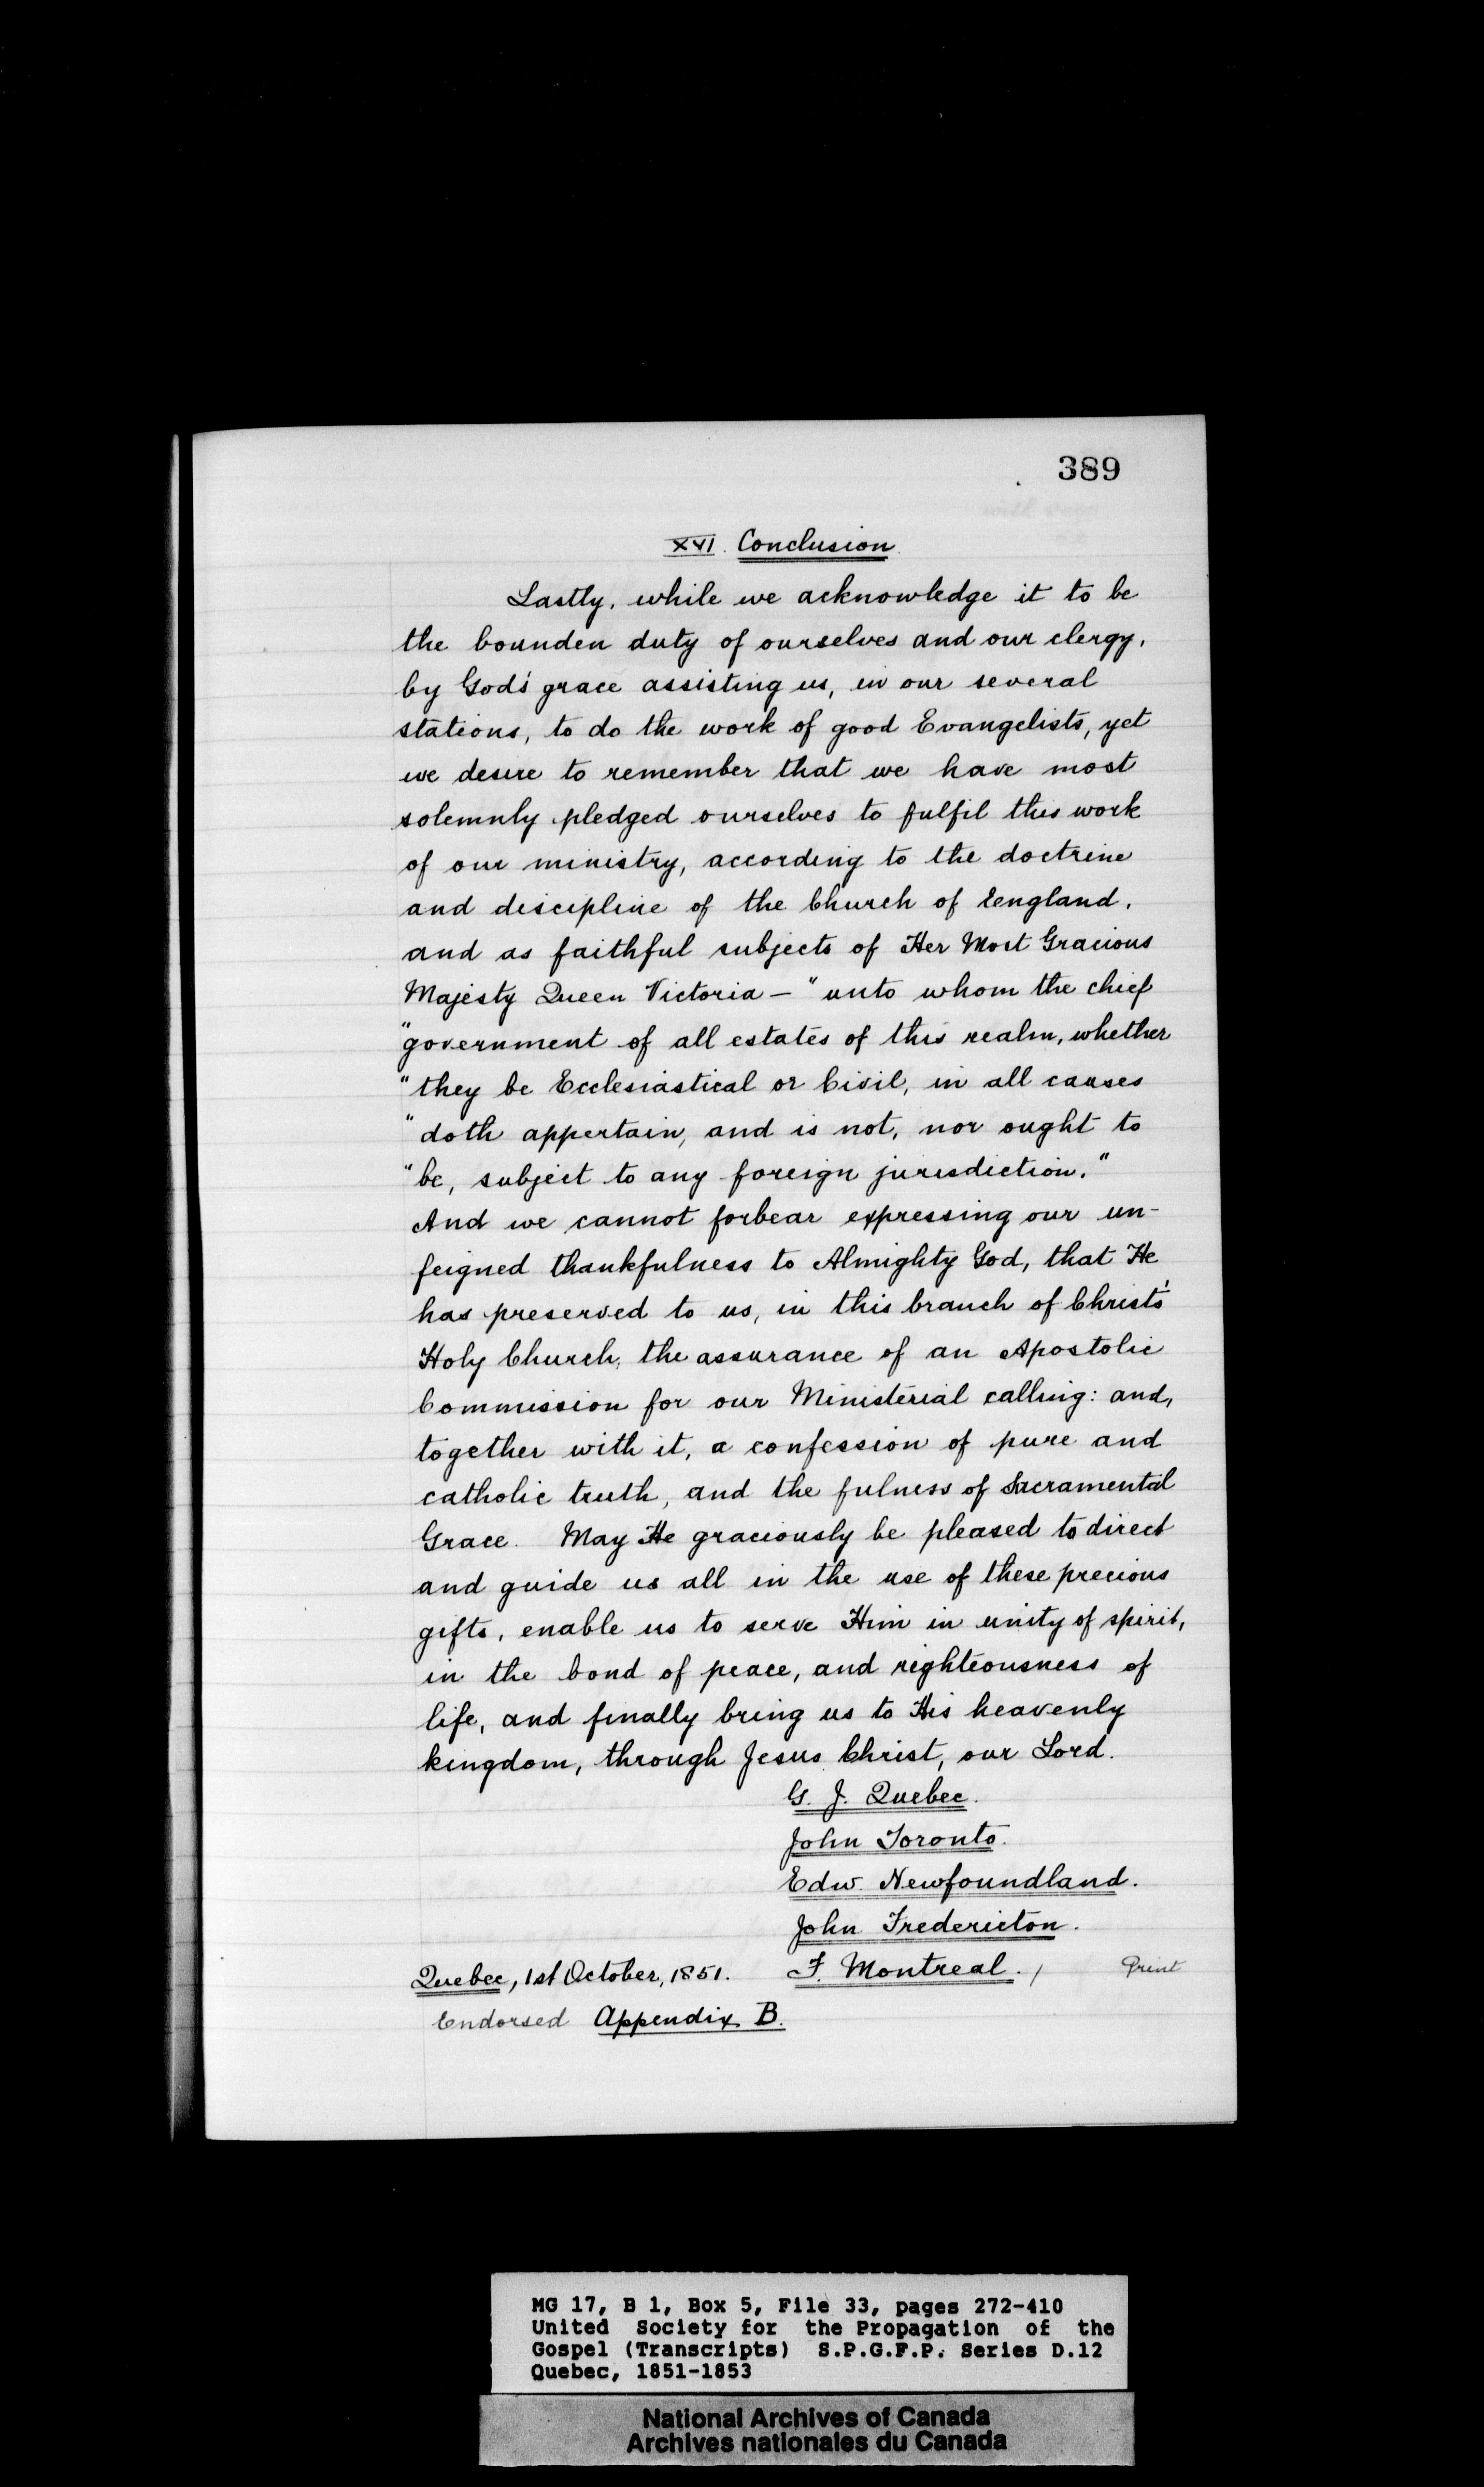 389
XVI. Conclusion
Lastly, while we acknowledge it to be
the bounden duty of ourselves and our clergy,
by God's grace assisting us, in our several
stations, to do the work of good Evangelists, yet
we desire to remember that we have most
solemnly pledged ourselves to fulfil this work
of our ministry, according to the doctrine
and discipline of the Church of England,
and as faithful subjects of Her Most Gracious
Majesty Queen Victoria — "unto whom the chief
"government of all estates of this realm, whether
"they be Ecclesiastical or Civil, in all causes
"doth appertain, and is not, nor ought to
"be, subject to any foreign jurisdiction."
And we cannot forbear expressing our un-
feigned thankfulness to Almighty God, that He
has preserved to us, in this branch of Christ's
Holy Church, the assurance of an Apostolic
Commission for our Ministerial calling: and,
together with it, a confession of pure and
catholic truth, and the fulness of Sacramental
Grace. May He graciously be pleased to direct
and guide us all in the use of these precious
gifts, enable us to serve Him in unity of spirit,
in the bond of peace, and righteousness of
life, and finally bring us to His heavenly
kingdom, through Jesus Christ, our Lord.
G. J. Quebec.
John Toronto.
Edw. Newfoundland.
John Fredericton.
Quebec, 1st October, 1851. F. Montreal. Print
Endorsed Appendix B.
MG 17, B 1, Box 5, File 33, pages 272-410
United Society for the Propagation of the
Gospel (Transcripts) S.P.G.F.P. Series D.12
Quebec, 1851-1853
National Archives of Canada
Archives nationales du Canada